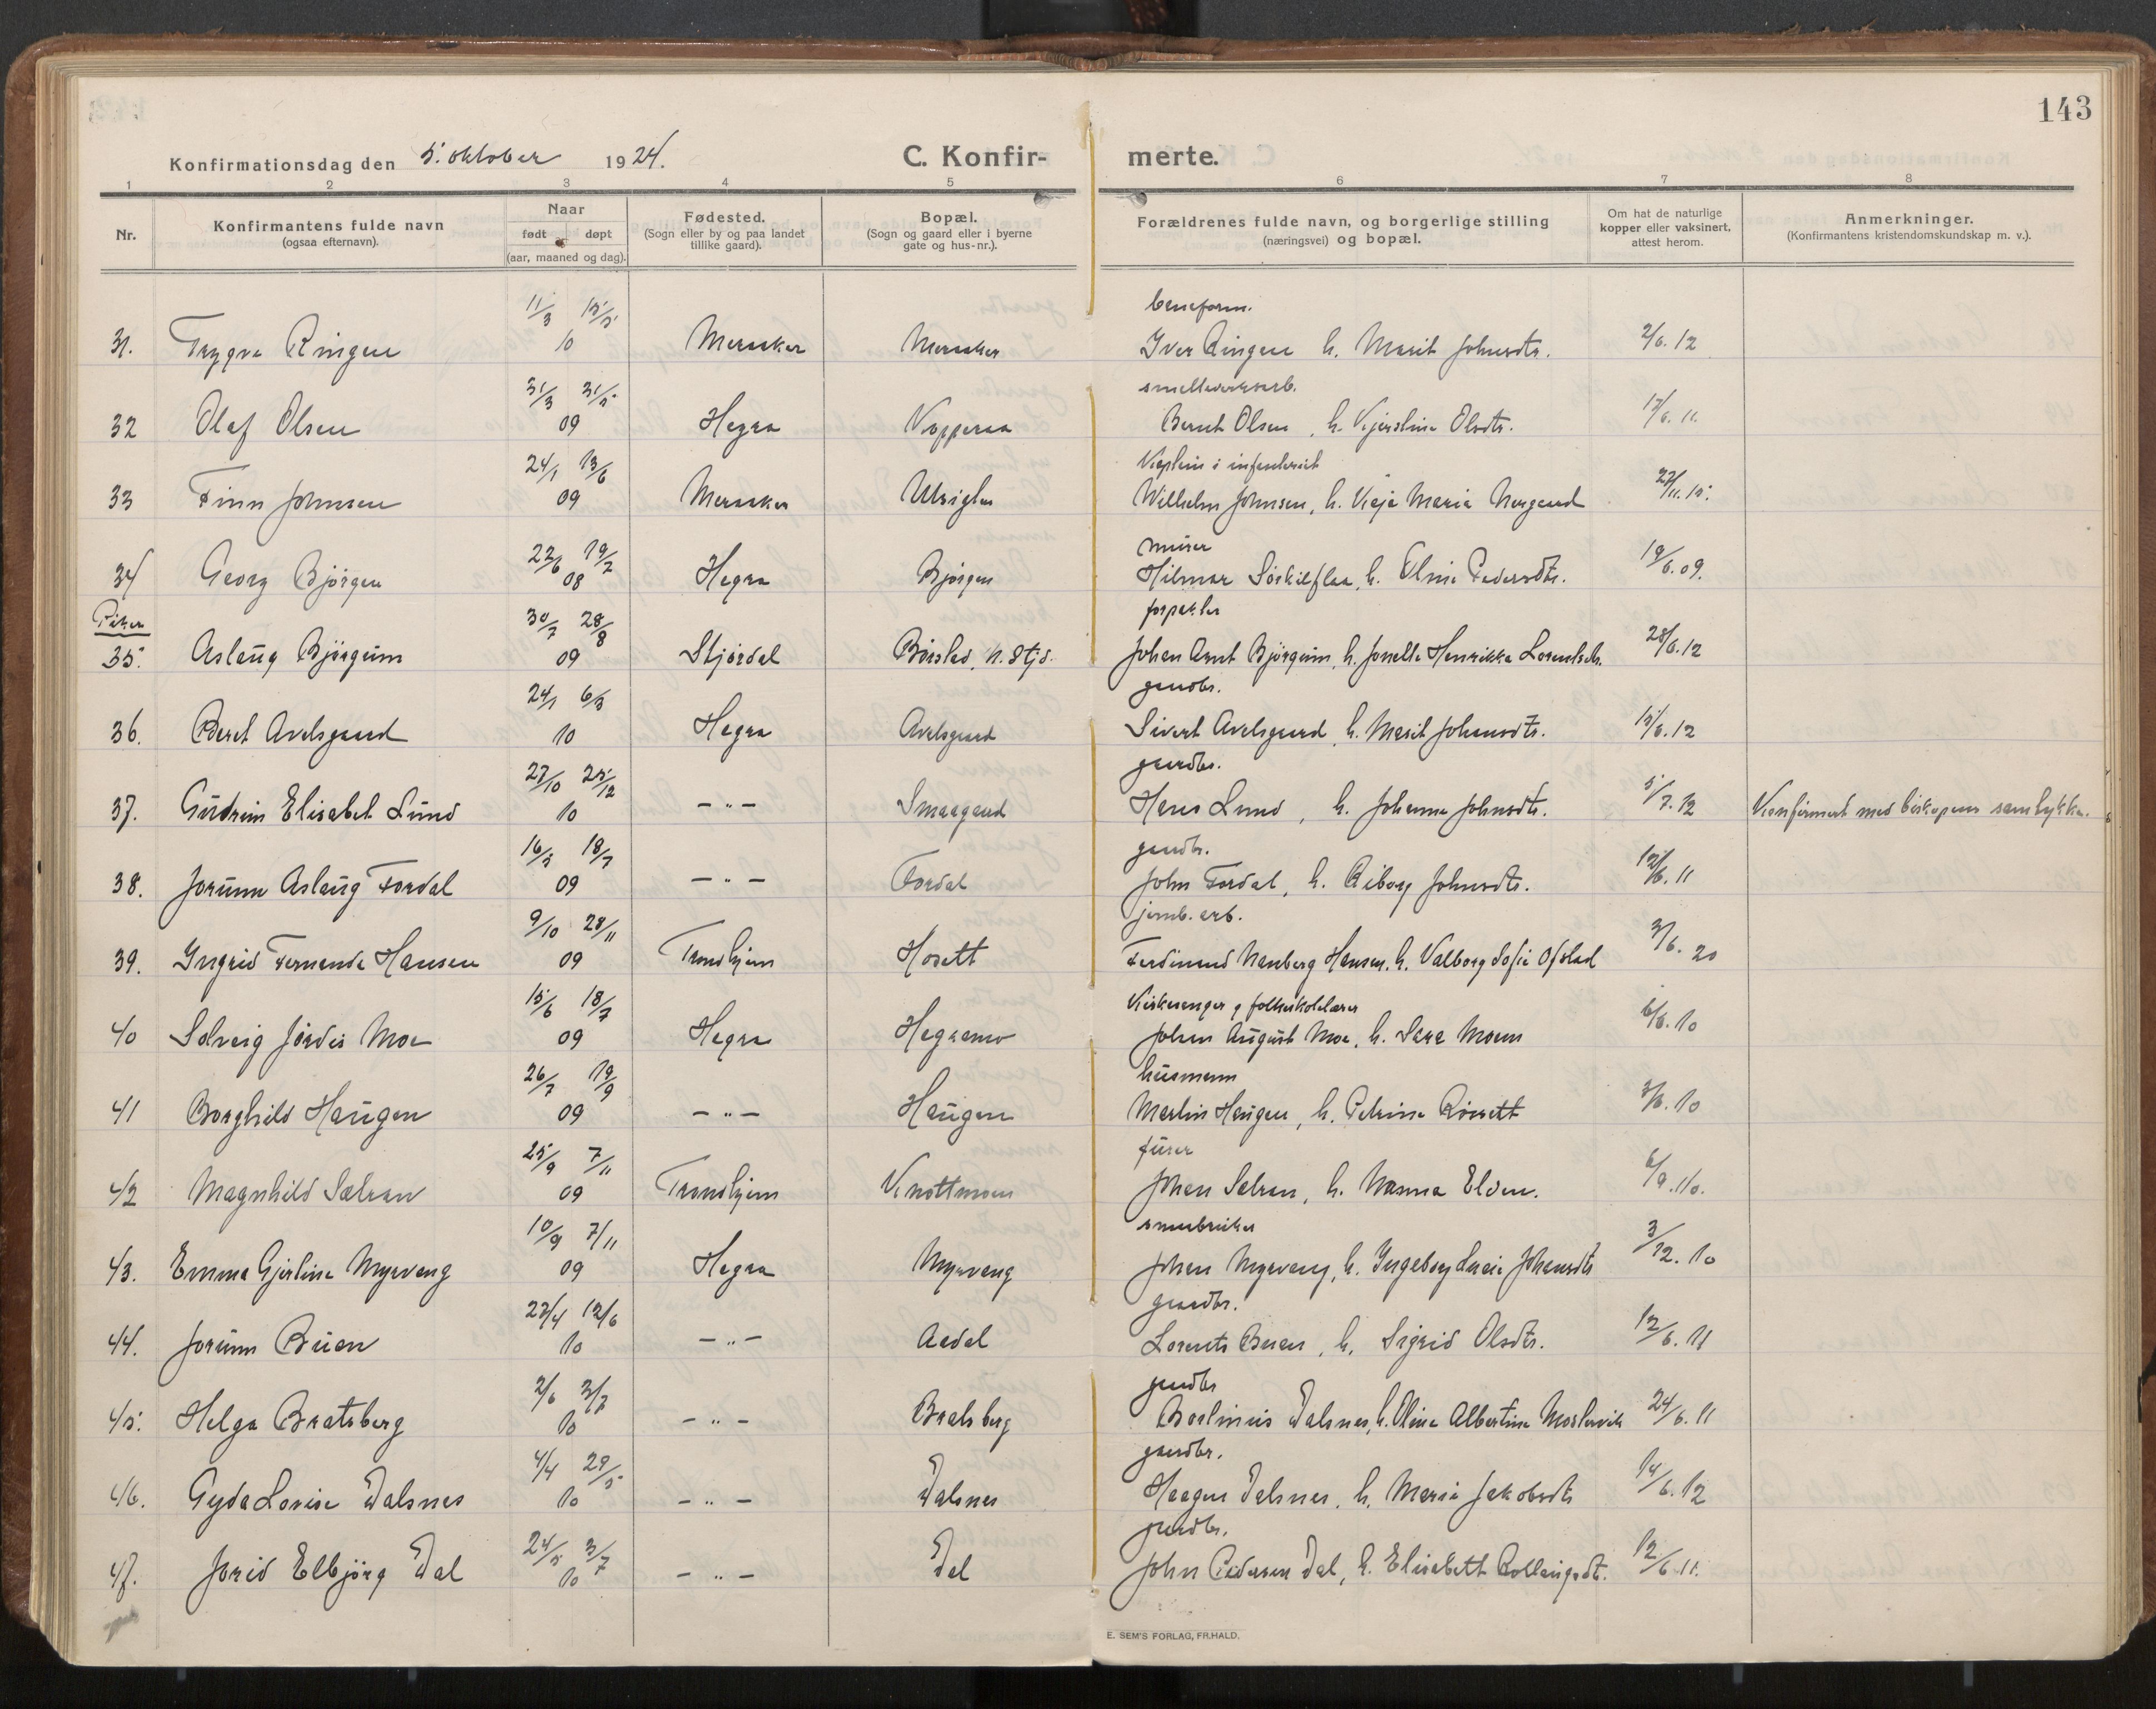 143
Konfirmationsdag den 5. oktober 1924.
C. Konfirmerte.
1 2 3 4 5 6 7 8
Nr.
Konfirmantens fulde navn
(ogsaa efternavn).
Naar
født døpt
(aar, maaned og dag).
Fødested.
(Sogn eller by og paa landet
tillike gaard).
Bopæl.
(Sogn og gaard eller i byerne
gate og hus-nr.).
Forældrenes fulde navn, og borgerlige stilling
(næringsvei) og bopæl.
Om hat de naturlige
kopper eller vaksinert,
attest herom.
Anmerkninger.
(Konfirmantens kristendomskundskap m. v.).
11/3 15/5 baneform.
31. Trygve Ringen 10 Meraaker Meraaker Iver Ringen h. Marit Johnsdtr. 2/6. 12
31/3 31/5 smelteverksarb.
32 Olaf Olsen 09 Hegra Kopperaa Bernt Olsen, h. Kjerstine Olsdtr. 17/6. 11.
24/1 13/6 Kaptein i infanteriet
33 Finn Johnsen 09 Meraaker Wilhelm Johnsen, h. Kaja Marie Norgaard 27/11. 15.
22/6 19/7 murer
34 Georg Bjørgen 08 Hegra Bjørgen Hilmar h. Oline Pedersdtr. 19/6. 09.
Piker 30/7 28/8 forpakter
35. Aslaug Bjørgum 09 Stjørdal Børstad, N. Stjd. Johan Arnt Bjørgum, h. Jonella Henrikka Lorentsdtr. 28/6. 12
24/1 6/3 gaardbr.
36. Beret Avelsgaard 10 Hegra Avelsgaard Sivert Avelsgaard, h. Marit Johansdtr. 15/6. 12
27/10 25/12 gaardbr.
37. Gudrun Elisabet Lund 10 - " - Smaagaard Hans Lund, h. Johanna Johnsdtr. 5/7. 12 Konfirmert med biskopens samtykke.
16/5 18/7 gaardbr.
38. Jorunn Aslaug Fordal 09 - " - Fordal John Fordal, h. Riborg Johnsdtr. 12/6. 11
9/10 28/11 jernb. arb.
39. Ingrid Fernanda Hansen 09 Trondhjem Hosett Ferdinand Nanberg Hansen, h. Valborg Sofie Ofstad 3/6. 20
15/6 18/7 Kirkesanger og folkeskolelærer
40 Solveig Jørdis Moe 09 Hegra Hegramo Johan August Moe, h. Sara Moum 6/6. 10
26/7 19/9 husmann
41 Borghild Haugen 09 - " - Haugen Martin Haugen, h. Petrine Rørsett 3/6. 10
25/9 7/11
42 Magnhild Sælran 09 Trondhjem Knottmoen Johan Sælran, h. Nanna Elden. 6/9. 10.
10/9 7/11 smaabruker
43. Emma Gjertine Myrvang 09 Hegra Myrvang Johan Myrvang, h. Ingeborg Johansdtr 3/12. 10
27/4 12/6 gaardbr.
44. Jorunn Buan 10 - " - Aadal Lorents Buan, h. Sigrid Olsdtr. 12/6. 11
2/6 3/7 gaardbr
45. Helga Bratsberg 10 - " - Bratsberg Borlinius Dalsnes, h. Oline Albertine Moslavik 24/6. 11
4/4 29/5 gaardbr.
46. Gyda Lovise Dalsnes 10 - " - Dalsnes Haagen Dalsnes, h. Marie Jakobsdtr 14/6. 12
24/5 3/7 gaardbr.
47. Jorid Elbjørg Dal 10 - " - Dal John Pedersen Dal, h. Elisabett 12/6 11.
E. SEM'S FORLAG, FR.HALD.